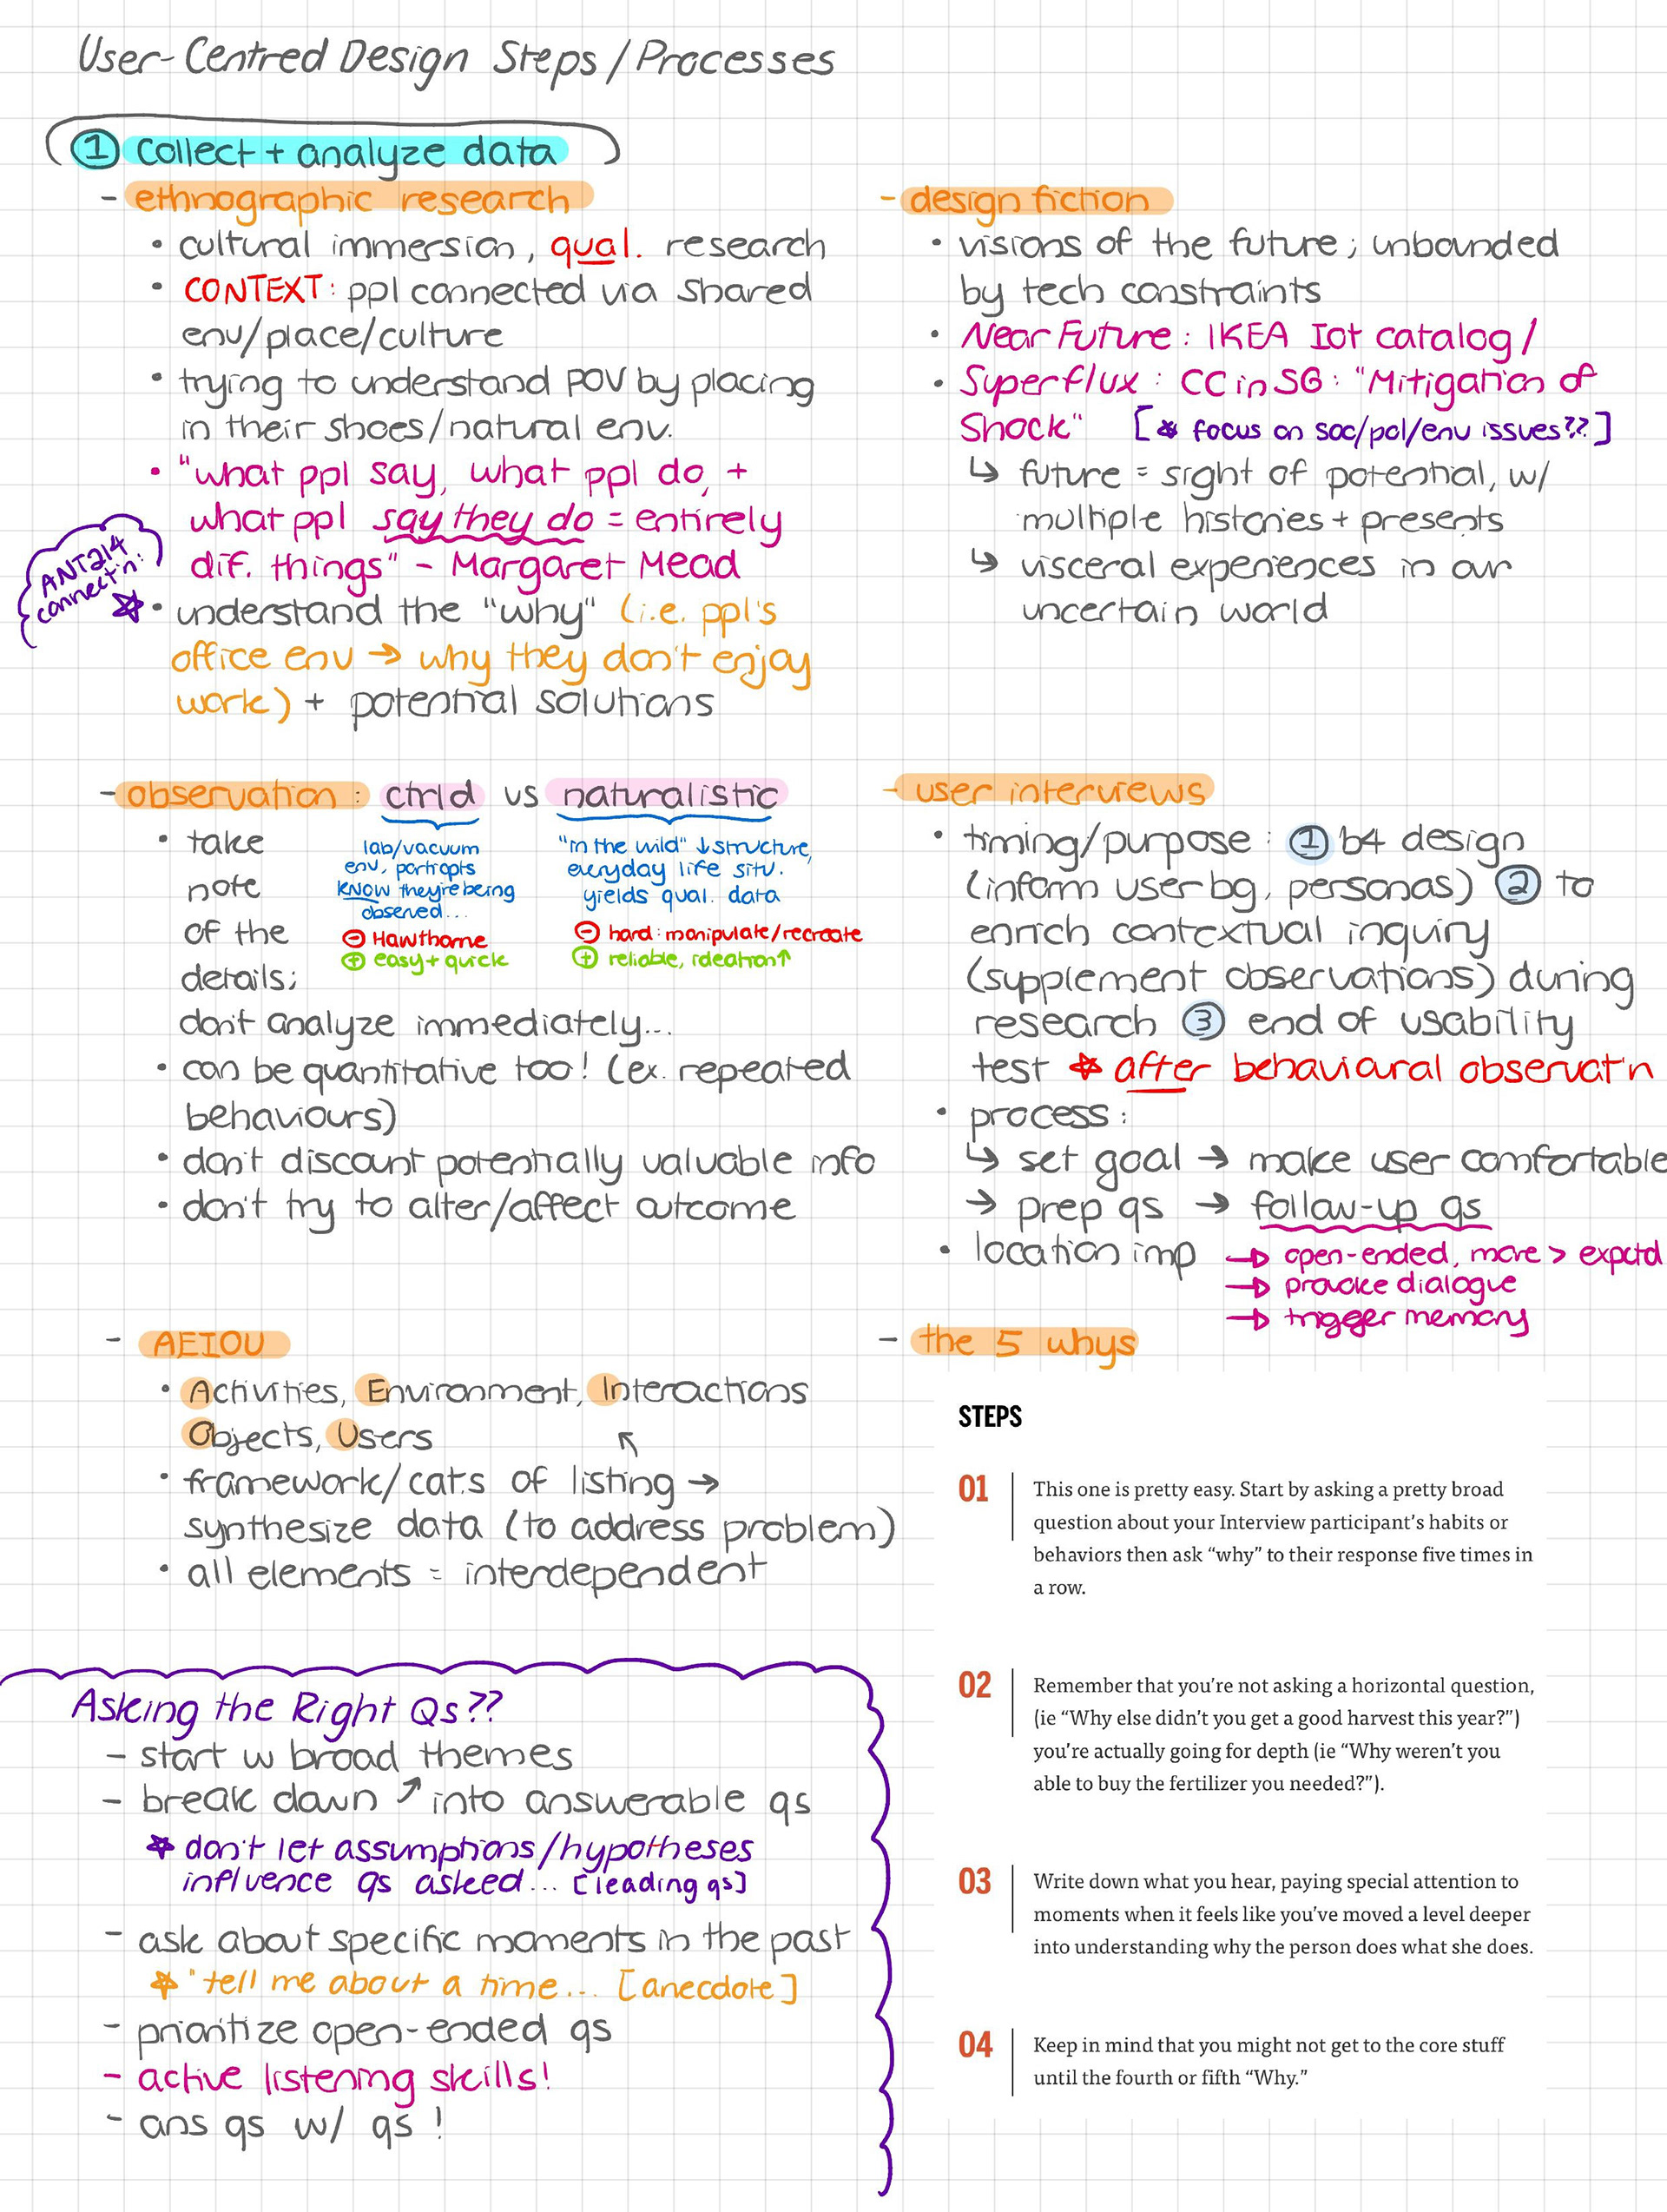 User-Centred Design Steps/Processes
① collect + analyze data
- ethnographic research
• cultural immersion, qual. research
• CONTEXT: ppl connected via shared
env/place/culture
• trying to understand POV by placing
in their shoes/natural env.
• "what ppl say, what ppl do, +
what ppl say they do = entirely
dif. things" - Margaret Mead
ANT214
connect'n!
☆ • understand the "why" (i.e. ppl's
office env → why they don't enjoy
work) + potential solutions
- design fiction
• visions of the future; unbounded
by tech constraints
• Near Future: IKEA IoT catalog/
• Superflux: CC in SG: "Mitigation of
Shock" [☆ focus on soc/pol/env issues??]
↳ future = sight of potential, w/
multiple histories + presents
↳ visceral experiences in our
uncertain world
- observation: ctrld vs naturalistic
• take
note
of the
details;
don't analyze immediately...
lab/vacuum
env, partcpts
KNOW they're being
observed...
⊖ Hawthorne
⊕ easy + quick
"in the wild" ↓structure,
everyday life situ.
yields qual. data
⊖ hard: manipulate/recreate
⊕ reliable, ideation↑
• can be quantitative too! (ex. repeated
behaviours)
• don't discount potentially valuable info
• don't try to alter/affect outcome
- user interviews
• timing/purpose: ① b4 design
(inform user bg, personas) ② to
enrich contextual inquiry
(supplement observations) during
research ③ end of usability
test ☆ after behavioural observat'n
• process:
↳ set goal → make user comfortable
→ prep qs → follow-up qs
• location imp
→ open-ended, more > expctd
→ provoke dialogue
→ trigger memory
- AEIOU
• Activities, Environment, Interactions
Objects, Users ↖
• framework/cats of listing →
synthesize data (to address problem)
• all elements = interdependent
- the 5 whys
STEPS
01 This one is pretty easy. Start by asking a pretty broad
question about your Interview participant's habits or
behaviors then ask "why" to their response five times in
a row.
02 Remember that you're not asking a horizontal question,
(ie "Why else didn't you get a good harvest this year?")
you're actually going for depth (ie "Why weren't you
able to buy the fertilizer you needed?").
03 Write down what you hear, paying special attention to
moments when it feels like you've moved a level deeper
into understanding why the person does what she does.
04 Keep in mind that you might not get to the core stuff
until the fourth or fifth "Why."
Asking the Right Qs??
- start w broad themes
- break down ↗ into answerable qs
☆ don't let assumptions/hypotheses
influence qs asked... [leading qs]
- ask about specific moments in the past
☆ "tell me about a time... [anecdote]
- prioritize open-ended qs
- active listening skills!
- ans qs w/ qs!